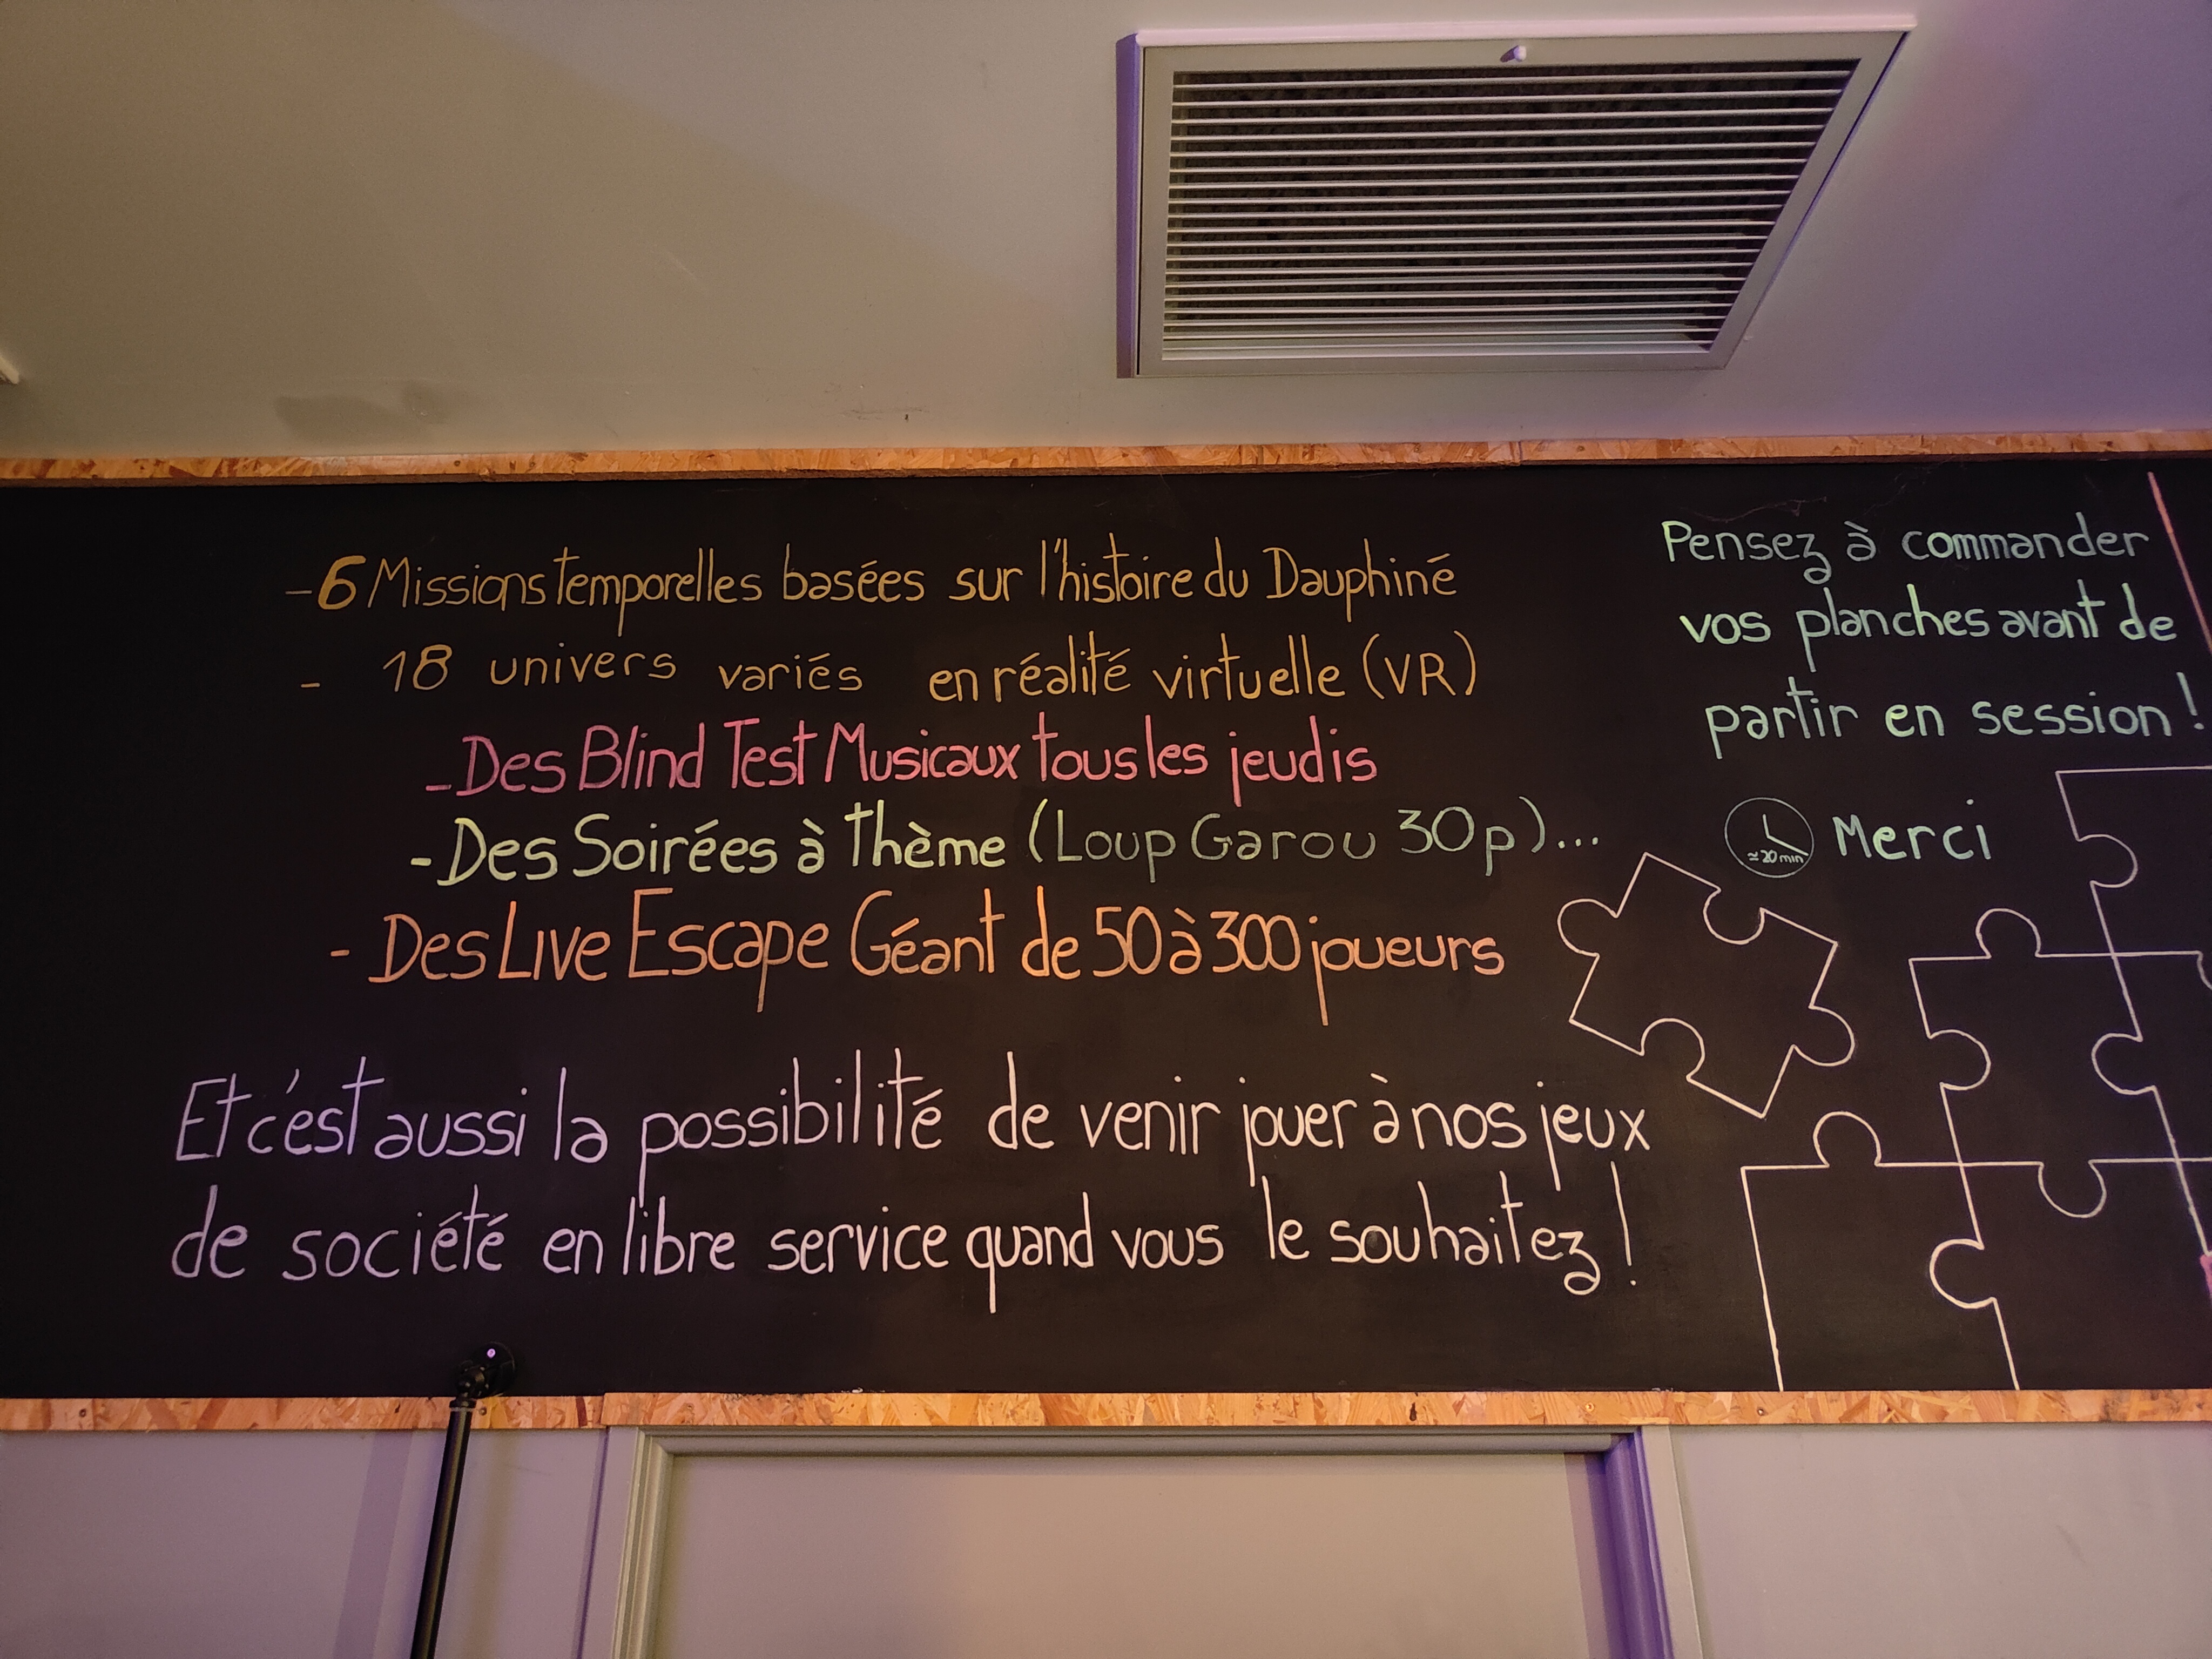 - 6 Missions temporelles basées sur l'histoire du Dauphiné
- 18 univers variés en réalité virtuelle (VR)
- Des Blind Test Musicaux tous les jeudis
- Des Soirées à thème (Loup Garou 30p)...
- Des Live Escape Géant de 50 à 300 joueurs
Et c'est aussi la possibilité de venir jouer à nos jeux
de société en libre service quand vous le souhaitez !
Pensez à commander
vos planches avant de
partir en session !
≃20min Merci